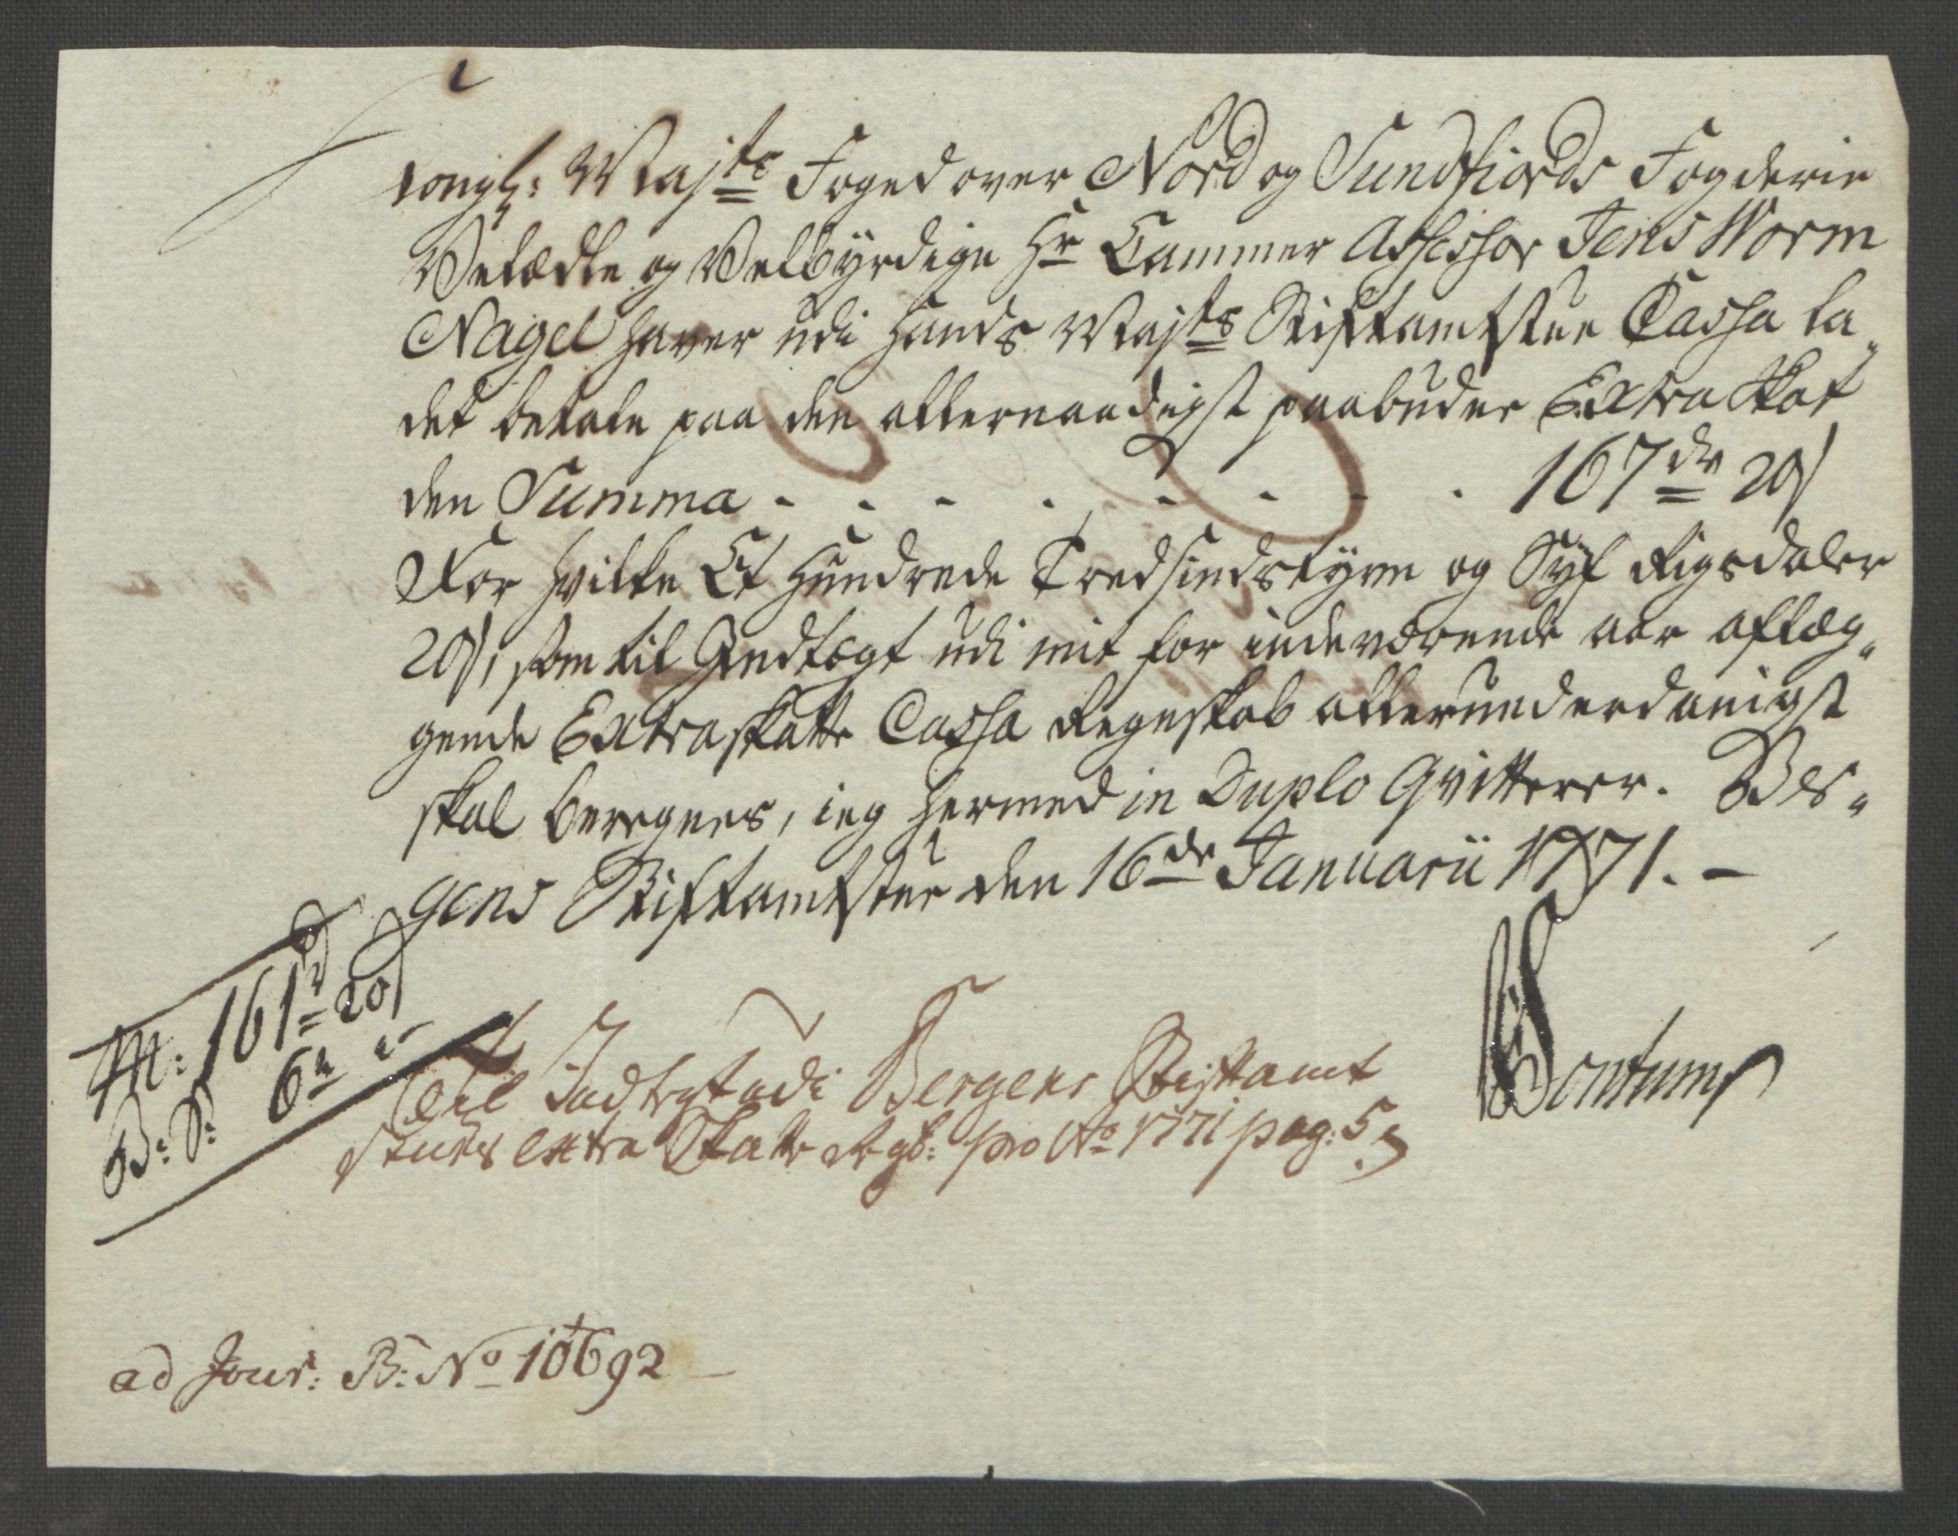 Kongl: Mayts Foged over Nord og Sundfiords Fogderie
Velædle og Velbyrdige Hr Cammer Assessor Jens Worm
Nagel haver udi Hands Mayts Stiftamtstue Cassa la-
det betale paa den allernaadigst paabudne Extra Skat
den Summa - - - - - - - - 167 dr 20 s
For hvilke Et Hundrede Tredsindstyve og Syf Rigsdaler
20 s, som til Indtægt udi mit for indeværende aar aflæg-
gende Extraskatte Cassa Regnskab allerunderdanigst
skal beregnes, ieg hermed in Duplo Qvitterer. Ber-
gens Stiftamtstue den 16de Januarii 1771. -
M: 161 d 20 s
B: S: 6 " "
Bontum
Til Indtegt udi Bergens Stiftamt
stues extra Skatte Rgb: pro Ao 1771 pag: 5
ad Jour: B: No 10692